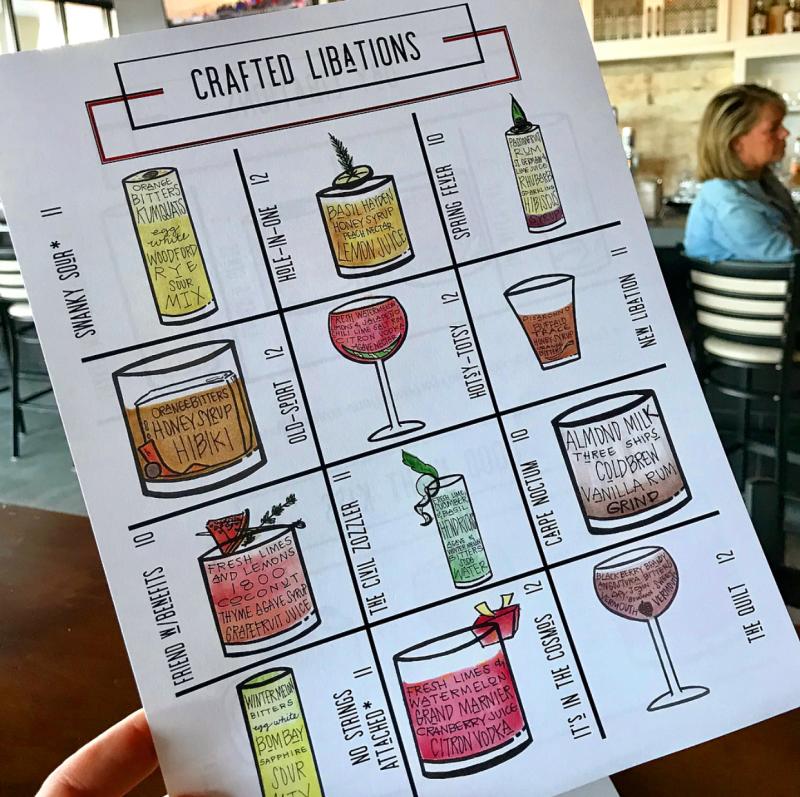 CRAFTED LIBATIONS
SWANKY SOUR* 11
ORANGE
BITTERS
KUMQUATS
egg
white
WOODFORD
RYE
SOUR
MIX
HOLE-IN-ONE 12
BASIL HAYDEN
HONEY SYRUP
PEACH NECTAR
LEMON JUICE
SPRING FEVER 10
PASSIONFRUIT
RUM
ST GERMAIN
LIME JUICE
RHUBARB
SPARKLING
HIBISCUS
OLD-SPORT 12
ORANGE BITTERS
HONEY SYRUP
HIBIKI
HOTSY-TOTSY 12
FRESH WATERMELON
LIMES & JALAPEÑO
CHILI LIME SALT RIM
CITRON VODKA
AGAVE NECTAR
NEW LIBATION 11
DISARONNO
BUFFALO
TRACE
HONEY SYRUP
ORANGE
BITTERS
FRIEND W/BENEFITS 10
FRESH LIMES
AND LEMONS
1800
COCONUT
THYME AGAVE SYRUP
GRAPEFRUIT JUICE
THE CIVIL ZOZZLER 11
FRESH LIME
CUCUMBER &
BASIL
HENDRICKS
AGAVE &
WINTER MELON
BITTERS
SODA
WATER
CARPE NOCTUM 10
ALMOND MILK
THREE SHIPS
COLDBREW
VANILLA RUM
GRIND
NO STRINGS
ATTACHED* 11
WINTERMELON
BITTERS
egg white
BOMBAY
SAPPHIRE
SOUR
MIX
IT'S IN THE COSMOS 12
FRESH LIMES &
WATERMELON
GRAND MARNIER
CRANBERRY JUICE
CITRON VODKA
THE QUILT 12
BLACKBERRY BRANDY
ANGOSTURA BITTERS
DRY
VERMOUTH